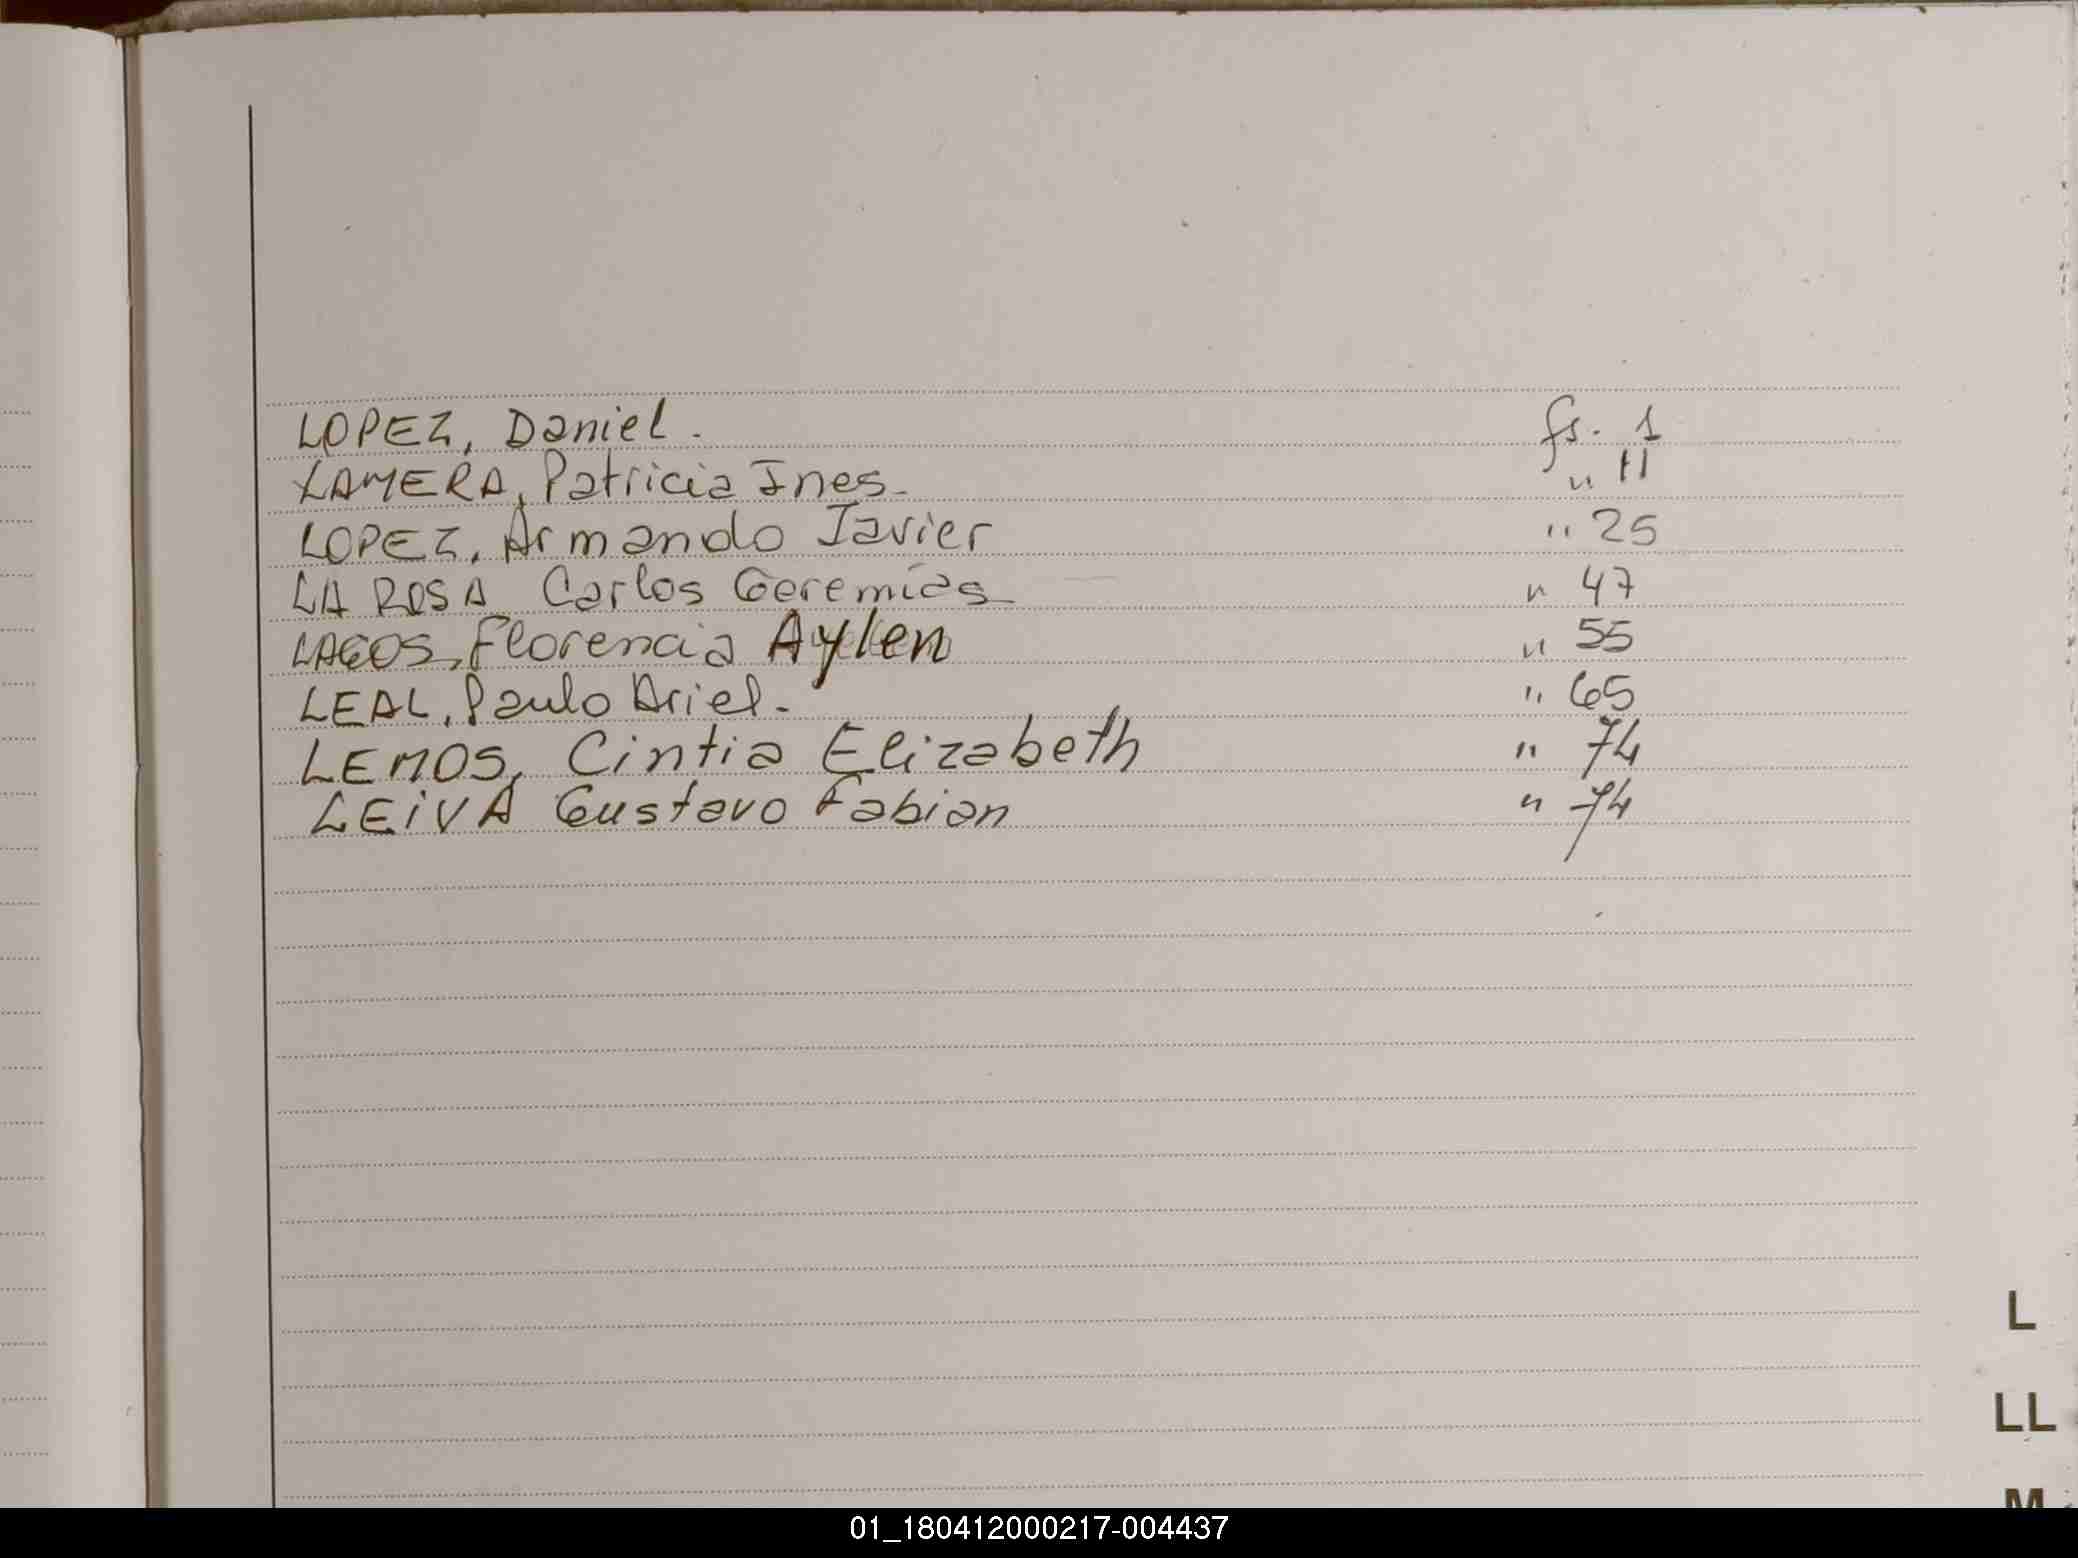 LOPEZ, Daniel. fs. 1
LAMERA, Patricia Ines- " 11
LOPEZ, Armando Javier " 25
LA ROSA Carlos Geremias " 47
LAGOS, Florencia Aylen " 55
LEAL, Paulo Ariel- " 65
LEMOS, Cintia Elizabeth " 74
LEIVA Gustavo Fabian " 74
L
LL
M
01_180412000217-004437